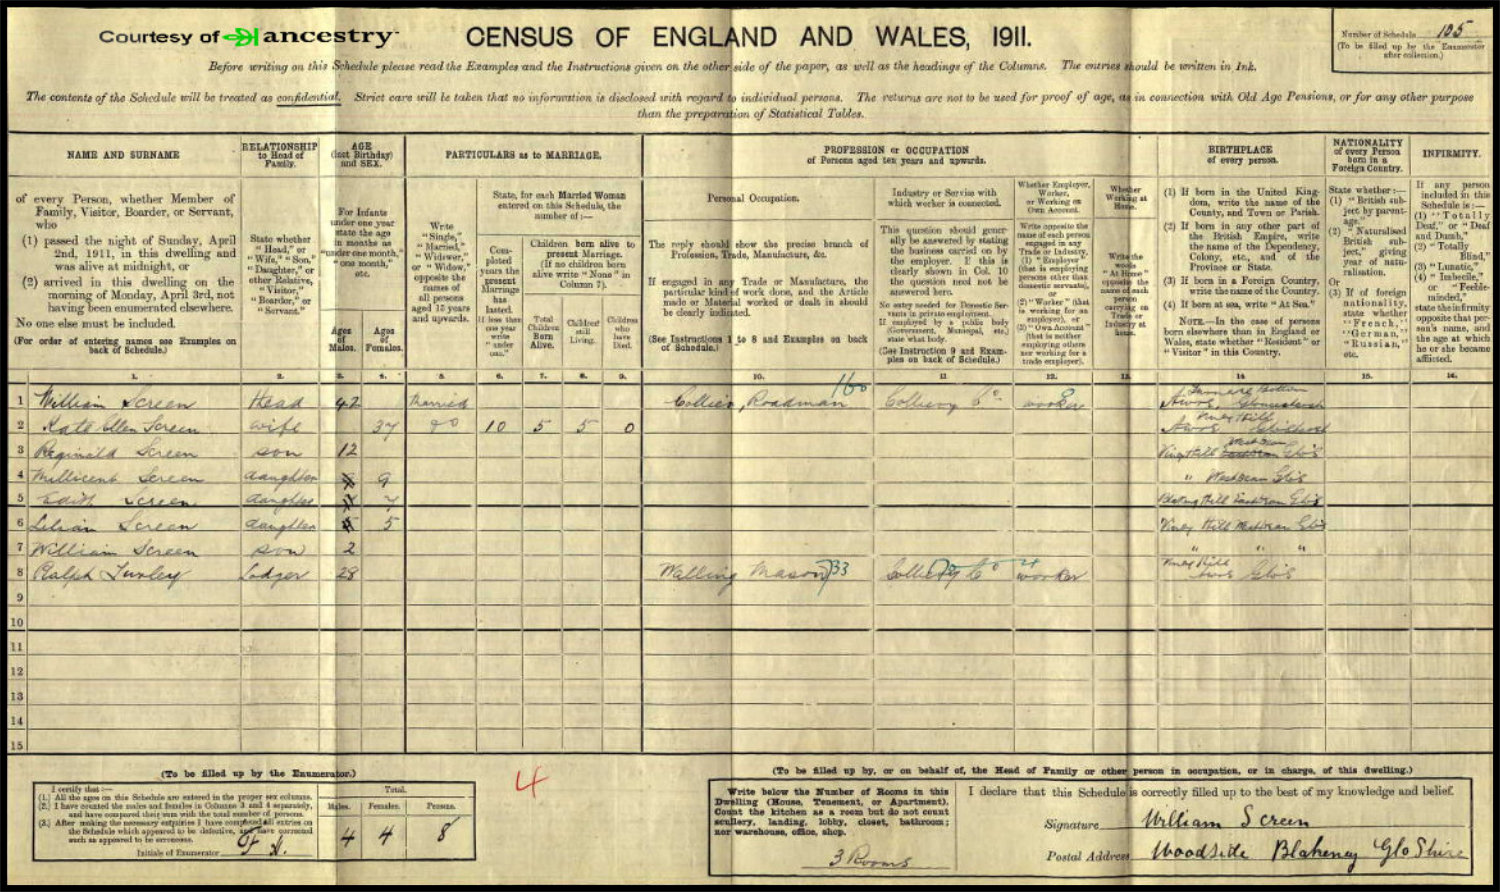 Courtesy of ancestry
CENSUS OF ENGLAND AND WALES, 1911.
Number of Schedule 105
(To be filled up by the Enumerator after collection.)
Before writing on this Schedule please read the Examples and the Instructions given on the other side of the paper, as well as the headings of the Columns. The entries should be written in Ink.
The contents of the Schedule will be treated as confidential. Strict care will be taken that no information is disclosed with regard to individual persons. The returns are not to be used for proof of age, as in connection with Old Age Pensions, or for any other purpose
than the preparation of Statistical Tables.
NAME AND SURNAME
of every Person, whether Member of
Family, Visitor, Boarder, or Servant,
who
(1) passed the night of Sunday, April
2nd, 1911, in this dwelling and
was alive at midnight, or
(2) arrived in this dwelling on the
morning of Monday, April 3rd, not
having been enumerated elsewhere.
No one else must be included.
(For order of entering names see Examples on
back of Schedule.)
RELATIONSHIP
to Head of
Family.
State whether
"Head," or
"Wife," "Son,"
"Daughter," or
other Relative,
"Visitor,"
"Boarder," or
"Servant."
AGE
(last Birthday)
and SEX.
For Infants
under one year
state the age
in months as
"under one month,"
"one month,"
etc.
Ages
of
Males.
Ages
of
Females.
PARTICULARS as to MARRIAGE.
Write
"Single,"
"Married,"
"Widower,"
or "Widow,"
opposite the
names of
all persons
aged 15 years
and upwards.
State, for each Married Woman
entered on this Schedule, the
number of:—
Completed
years the
present
Marriage
has
lasted.
If less than
one year
write
"under
one."
Children born alive to
present Marriage.
(If no children born
alive write "None" in
Column 7).
Total
Children
Born
Alive.
Children
still
Living.
Children
who
have
Died.
PROFESSION or OCCUPATION
of Persons aged ten years and upwards.
Personal Occupation.
The reply should show the precise branch of
Profession, Trade, Manufacture, &c.
If engaged in any Trade or Manufacture, the
particular kind of work done, and the Article
made or Material worked or dealt in should
be clearly indicated.
(See Instructions 1 to 8 and Examples on back
of Schedule.)
Industry or Service with
which worker is connected.
This question should generally
be answered by stating
the business carried on by
the employer. If this is
clearly shown in Col. 10
the question need not be
answered here.
No entry needed for Domestic Servants
in private employment.
If employed by a public body
(Government, Municipal, etc.)
state what body.
(See Instruction 9 and Examples
on back of Schedule.)
Whether Employer,
Worker,
or Working on
Own Account.
Write opposite the
name of each person
engaged in any
Trade or Industry,
(1) "Employer"
(that is employing
persons other than
domestic servants),
or
(2) "Worker" (that
is working for an
employer), or
(3) "Own Account"
(that is neither
employing others
nor working for a
trade employer).
Whether
Working at
Home.
Write the
words
"At Home"
opposite the
name of each
person
carrying on
Trade or
Industry at
home.
BIRTHPLACE
of every person.
(1) If born in the United Kingdom,
write the name of the
County, and Town or Parish.
(2) If born in any other part of
the British Empire, write
the name of the Dependency,
Colony, etc., and of the
Province or State.
(3) If born in a Foreign Country,
write the name of the Country.
(4) If born at sea, write "At Sea."
NOTE.—In the case of persons
born elsewhere than in England or
Wales, state whether "Resident" or
"Visitor" in this Country.
NATIONALITY
of every Person
born in a
Foreign Country.
State whether:—
(1) "British subject
by parentage."
(2) "Naturalised
British subject,"
giving
year of naturalisation.
Or
(3) If of foreign
nationality,
state whether
"French,"
"German,"
"Russian,"
etc.
INFIRMITY.
If any person
included in this
Schedule is:—
(1) "Totally
Deaf," or "Deaf
and Dumb,"
(2) "Totally
Blind,"
(3) "Lunatic,"
(4) "Imbecile,"
or "Feeble-minded,"
state the infirmity
opposite that person's
name, and
the age at which
he or she became
afflicted.
1. 2. 3. 4. 5. 6. 7. 8. 9. 10. 11 12. 13. 14 15. 16.
1 William Screen Head 42 Married Collier, Roadman 160 Colliery Co worker
2 Kate Ellen Screen wife 37 do 10 5 5 0 Viney Hill
3 Reginald Screen son 12 Viney Hill West Dean Glos
4 Millicent Screen daughter 9 " West Dean Glos
5 Edith Screen daughter 7 East Dean Glos
6 Lilian Screen daughter 5 Viney Hill West Dean Glos
7 William Screen son 2 " " "
8 Ralph Turley Lodger 28 Walling Mason 733 Colliery Co worker Viney Hill Awre Glos
9
10
11
12
13
14
15
(To be filled up by the Enumerator.)
I certify that:—
(1.) All the ages on this Schedule are entered in the proper sex columns.
(2.) I have counted the males and females in Columns 3 and 4 separately,
and have compared their sum with the total number of persons.
(3.) After making the necessary enquiries I have completed all entries on
the Schedule which appeared to be defective, and have corrected
such as appeared to be erroneous.
Initials of Enumerator
Total.
Males. Females. Persons.
4 4 8
4
(To be filled up by, or on behalf of, the Head of Family or other person in occupation, or in charge, of this dwelling.)
Write below the Number of Rooms in this
Dwelling (House, Tenement, or Apartment).
Count the kitchen as a room but do not count
scullery, landing, lobby, closet, bathroom;
nor warehouse, office, shop.
3 Rooms
I declare that this Schedule is correctly filled up to the best of my knowledge and belief.
Signature William Screen
Postal Address Woodside Blakeney GloShire